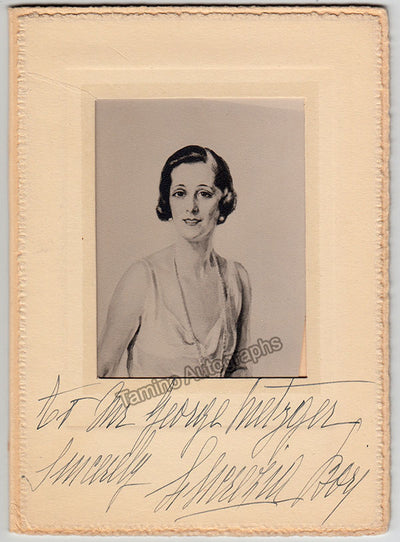 Tamino Autographs
to Mr George Metzger
Sincerely Lucrezia Bori